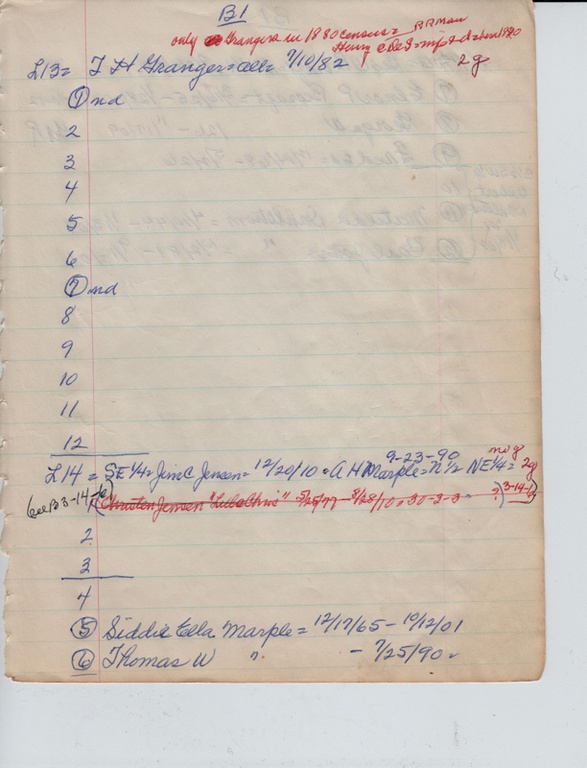 B1
only Grangers in 1880 census = RR Man
Henry
L13 = T H Granger = all = 7/10/82 2g
1 nd
2
3
4
5
6
7 nd
8
9
10
11
12
9-23-90 no g
L14 = SE 1/4 = Jim C Jensen = 12/20/10 · A H Marple = N 1/2 NE 1/4 = 2g
(see B3-14-6) 1 (Christen Jensen "Luba Chris" 5/25/77 - 8/28/10 = 30-2-3 = ?) 3-14-6)
2
3
4
5 Siddie Ella Marple = 12/17/65 - 10/12/01
6 Thomas W " - 7/25/90 =